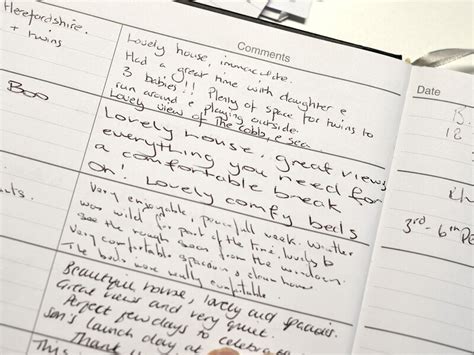 Herefordshire.
+ twins
Boo
Comments
Lovely house, immaculate.
Had a great time with daughter &
3 babies!! Plenty of space for twins to
run around & playing outside.
Lovely view of The Cobb & sea
Lovely house, great views
everything you need for
a comfortable break
Oh! Lovely comfy beds
Very enjoyable, peacefull week. Weather
was wild for part of the time, lovely to
see the rough seas from the windows.
Very comfortable spacious & clean house
The beds were really comfortable.
Beautiful house, lovely and spacious.
Great views and very quiet.
Perfect few days to celebrate
son's launch day at
Thank
This
Date
15
12
3rd - 6th De